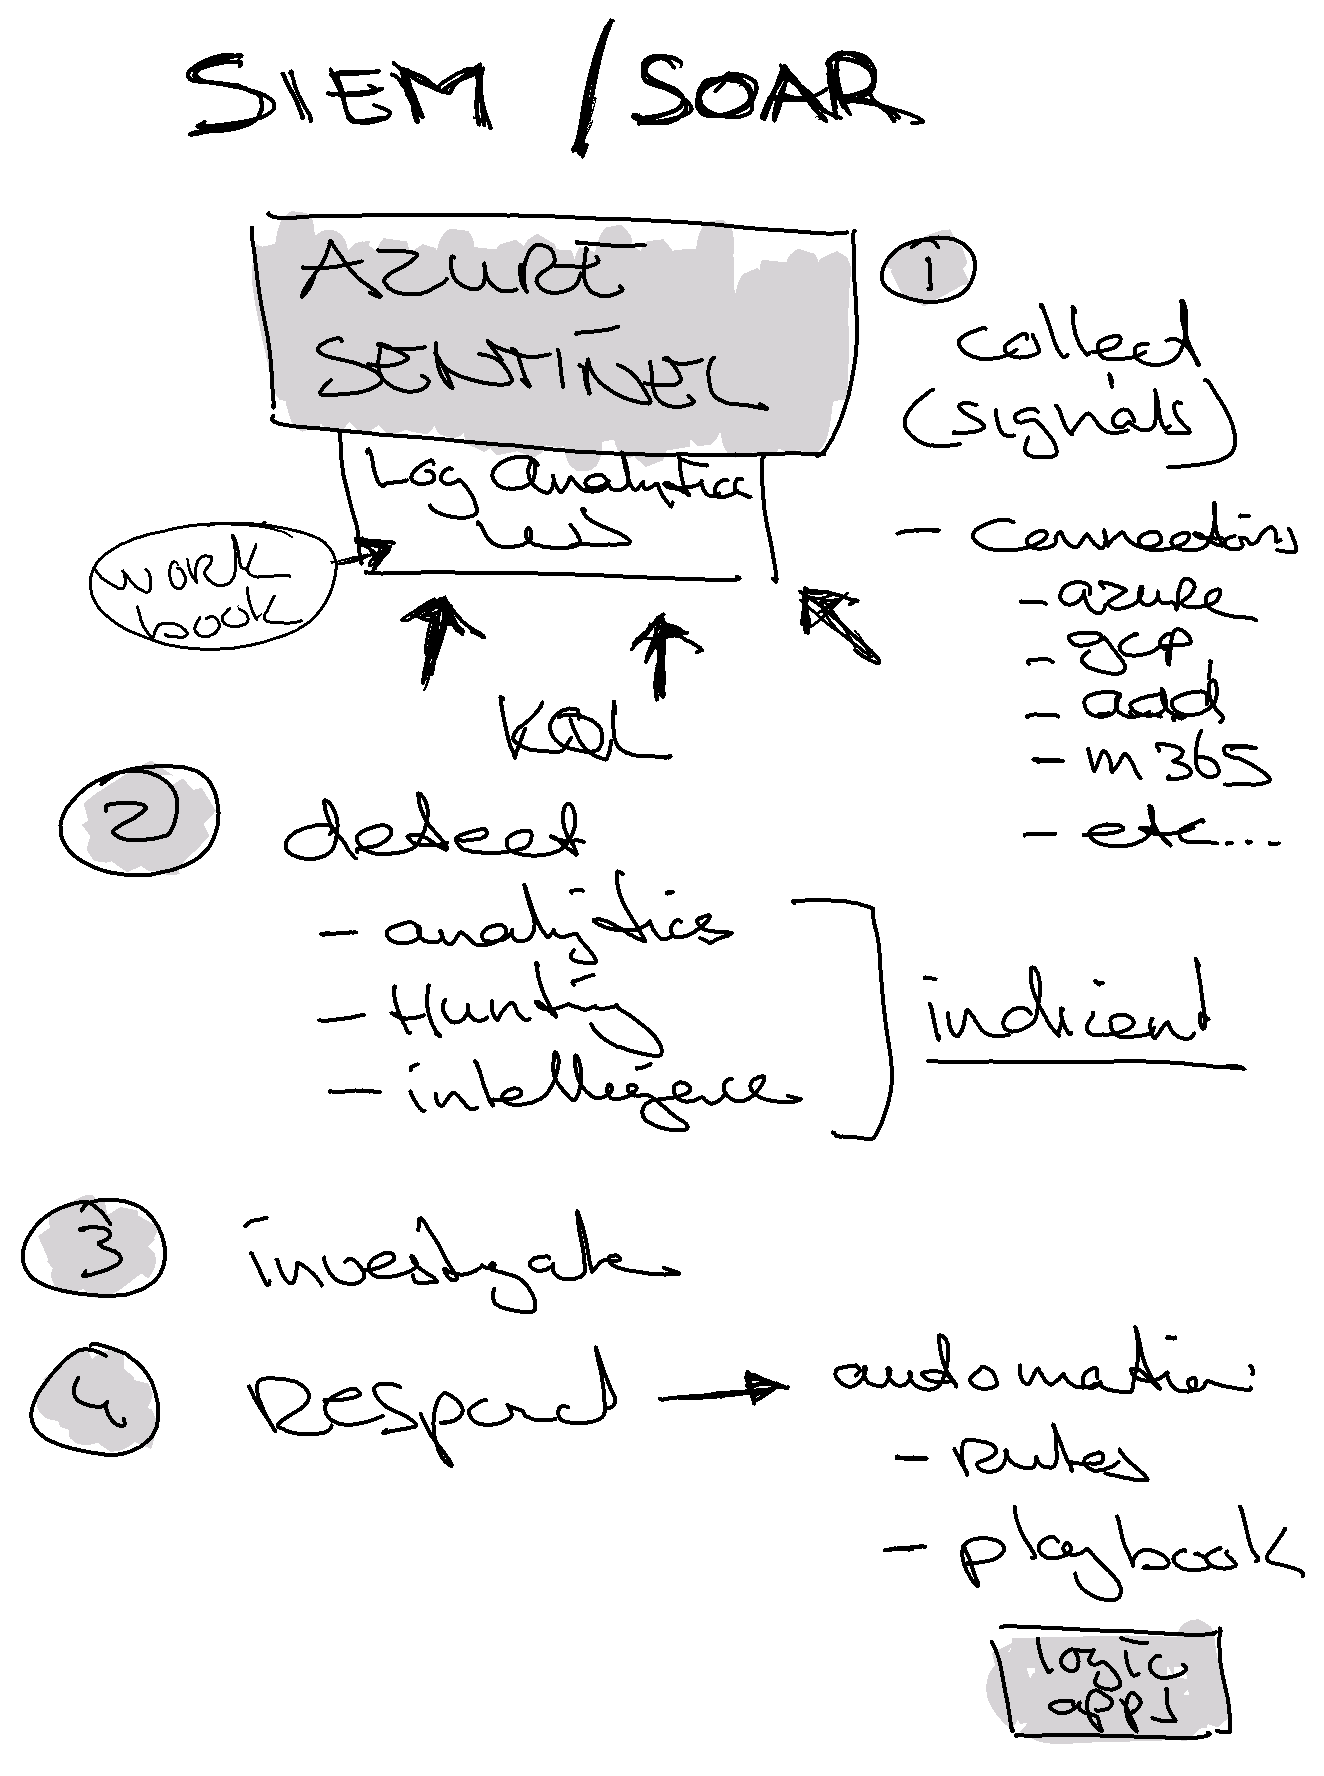 SIEM / SOAR
AZURE
SENTINEL
Log Analytics
WS
work
book
KQL
1
collect
(signals)
- Connectors
- azure
- gcp
- aad
- m365
- etc...
2
detect
- analytics
- Hunting
- intelligence
incident
3
investigate
4
Respond → automation:
- Rules
- playbook
logic
apps